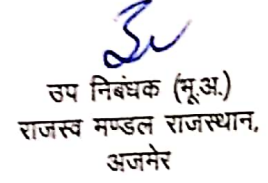 उप निबंधक (मू.अ.)
राजस्व मण्डल राजस्थान,
अजमेर